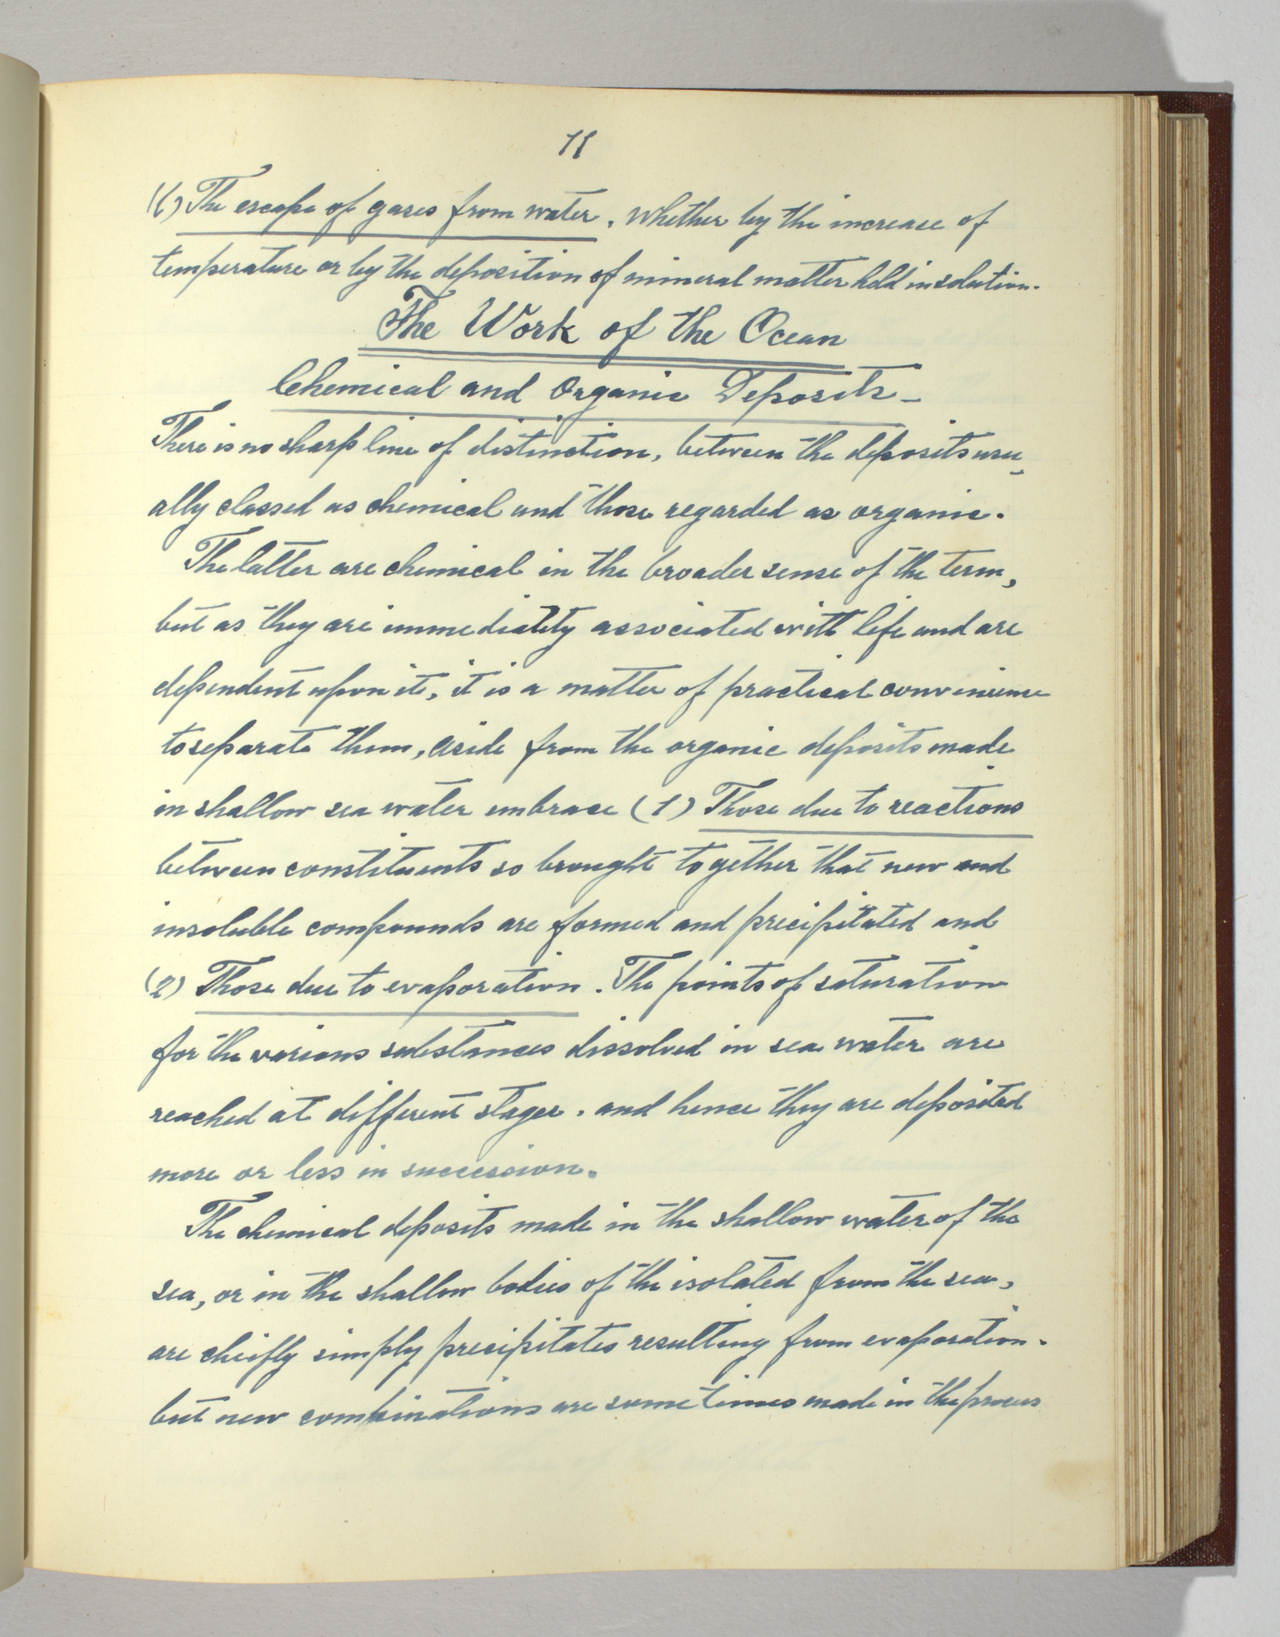 11
(6) The escape of gases from water. Whether by the increase of
temperature or by the deposition of mineral matter held in solution.
The Work of the Ocean
Chemical and Organic Deposits-
There is no sharp line of distinction, between the deposits usu-
ally classed as chemical and those regarded as organic.
The latter are chemical in the broader sense of the term,
but as they are immediatety associated with life and are
dependent upon it, it is a matter of practical convenience
to separate them, aside from the organic deposits made
in shallow sea water embrace (1) Those due to reactions
between constituents so brought together that new and
insoluble compounds are formed and precipitated and
(2) Those due to evaporation. The points of saturation
for the various substances dissolved in sea water are
reached at different stages. and hence they are deposited
more or less in succession.
The chemical deposits made in the shallow water of the
sea, or in the shallow bodies of the isolated from the sea,
are chiefly simply precipitates resulting from evaporation.
but new combinations are sometimes made in the process